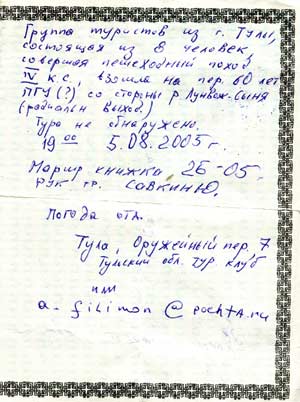 Группа туристов из г. Тулы,
состоящая из 8 человек
совершая пешеходный поход
IV к.с. взошла на пер. 60 лет
ПГУ (?) со стороны р Лунвож-Сыня
(радиальн выход.)
Тура не обнаружено.
19 00 5.08.2005 г.
Маршр книжка 26-05.
рук гр. Савкин Ю.
погода отл.
Тула, Оружейный пер. 7
Тульский обл. тур. клуб
или
a-filimon@pochta.ru